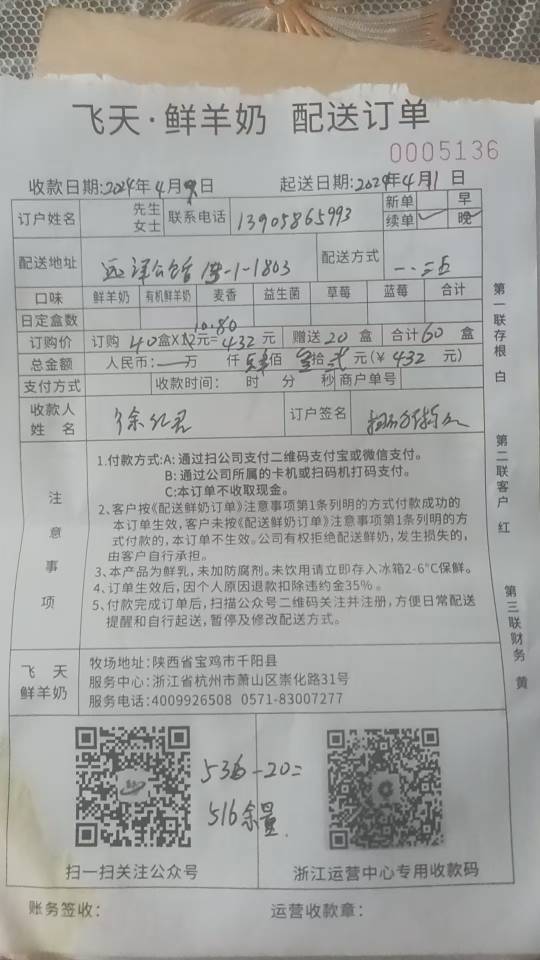 飞天·鲜羊奶 配送订单
0005136
收款日期:2024年4月 日 起送日期:2024年4月1日
订户姓名 先生 女士 联系电话 13905865993 新单 早 续单 ✓ 晚 ✓
配送地址 1-1803 配送方式 一、三、五
口味 鲜羊奶 有机鲜羊奶 麦香 益生菌 草莓 蓝莓 合计
日定盒数
10.80
订购价 订购 40盒X 元=432元 赠送20盒 合计60盒
总金额 人民币: 万 仟 肆佰 叁拾贰元(¥432元)
支付方式 收款时间: 时 分 秒 商户单号
收款人姓名 徐 订户签名
注意事项
1.付款方式:A:通过扫公司支付二维码支付宝或微信支付。
B:通过公司所属的卡机或扫码机打码支付。
C:本订单不收取现金。
2、客户按《配送鲜奶订单》注意事项第1条列明的方式付款成功的
本订单生效,客户未按《配送鲜奶订单》注意事项第1条列明的方
式付款的,本订单不生效。公司有权拒绝配送鲜奶,发生损失的,
由客户自行承担。
3、本产品为鲜乳,未加防腐剂。未饮用请立即存入冰箱2-6°C保鲜。
4、订单生效后,因个人原因退款扣除违约金35%。
5、付款完成订单后,扫描公众号二维码关注并注册,方便日常配送
提醒和自行起送,暂停及修改配送方式。
第一联存根 白
第二联客户 红
第三联财务 黄
飞天鲜羊奶
牧场地址:陕西省宝鸡市千阳县
服务中心:浙江省杭州市萧山区崇化路31号
服务电话:4009926508 0571-83007277
536-20=
516余量
扫一扫关注公众号 浙江运营中心专用收款码
账务签收: 运营收款章: